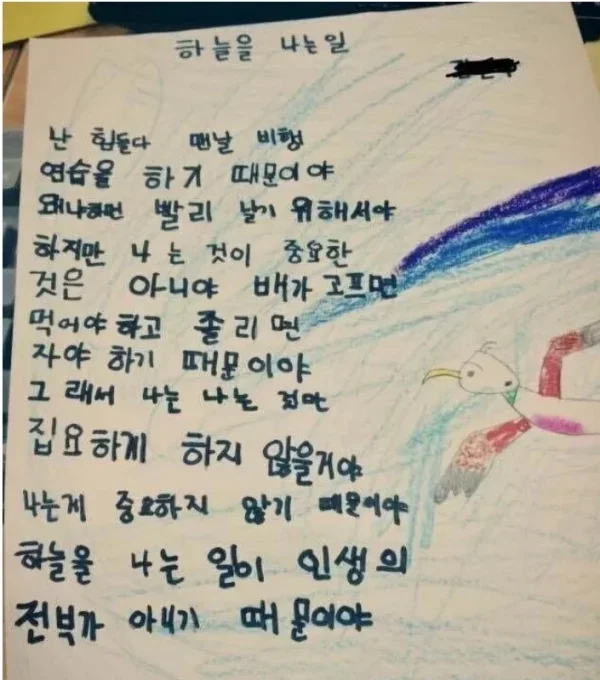 하늘을 나는일
난 힘들다 맨날 비행
연습을 하기 때문이야
왜냐하면 빨리 날기 위해서야
하지만 나 는 것이 중요한
것은 아니야 배가 고프면
먹어야 하고 졸리면
자야 하기 때문이야
그래서 나는 나는
집요하게 하지 않을거야
나는게 중요하지 않기 때문이야
하늘을 나는 일이 인생의
전부가 아니기 때문이야